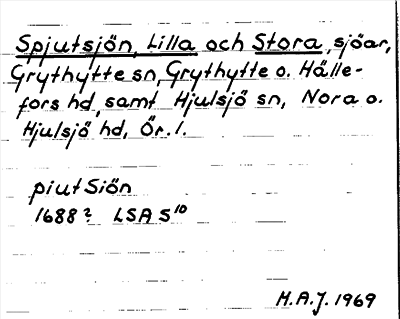 Spjutsjön, Lilla och Stora, sjöar,
Grythytte sn, Grythytte o. Hälle-
fors hd, samt Hjulsjö sn, Nora o.
Hjulsjö hd, Ör. l.
piutSiön
1688? LSA S¹⁰
M.A.J. 1969